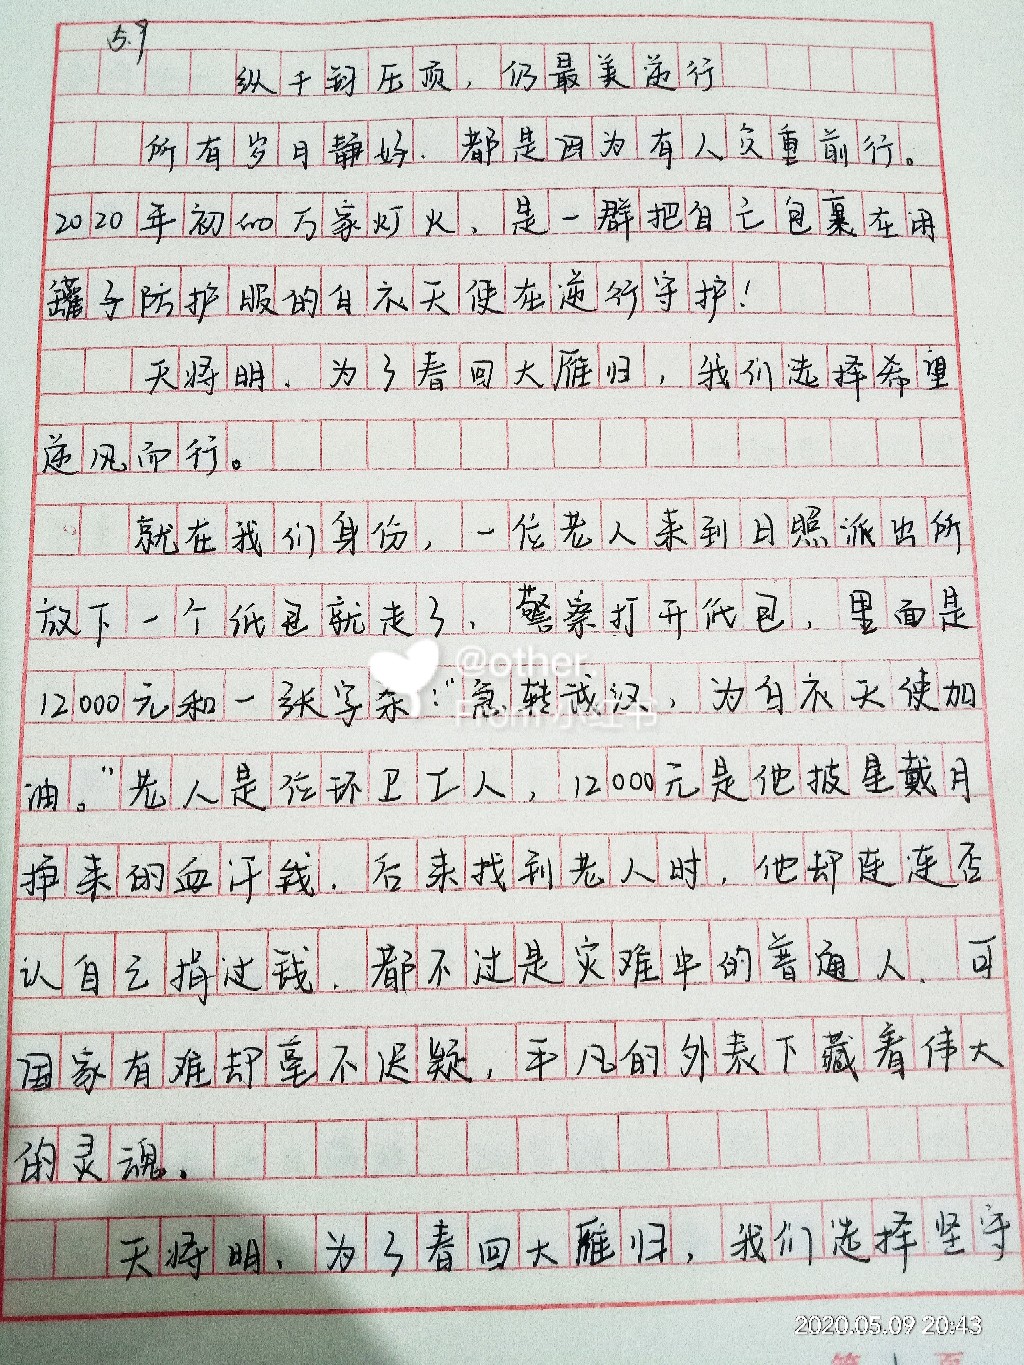 5.9
纵千
压顶，仍最美逆行
所有岁月静好，都是因为有人负重前行。
2020年初的万家灯火，是一群把自己包裹在用
罐子防护服的白衣天使在逆行守护！
天将明，为了春回大雁归，我们选择希望
逆风而行。
就在我们身份，一位老人来到日照派出所
放下一个纸包就走了，警察打开纸包，里面是
12000元和一张字条："急转武汉，为白衣天使加
油。"老人是位环卫工人，12000元是他披星戴月
挣来的血汗钱，后来找到老人时，他却连连否
认自己捐过钱，都不过是灾难中的普通人，可
国家有难却毫不迟疑，平凡的外表下藏着伟大
的灵魂。
天将明，为了春回大雁归，我们选择坚守
@other.
From小红书
2020.05.09 20:43